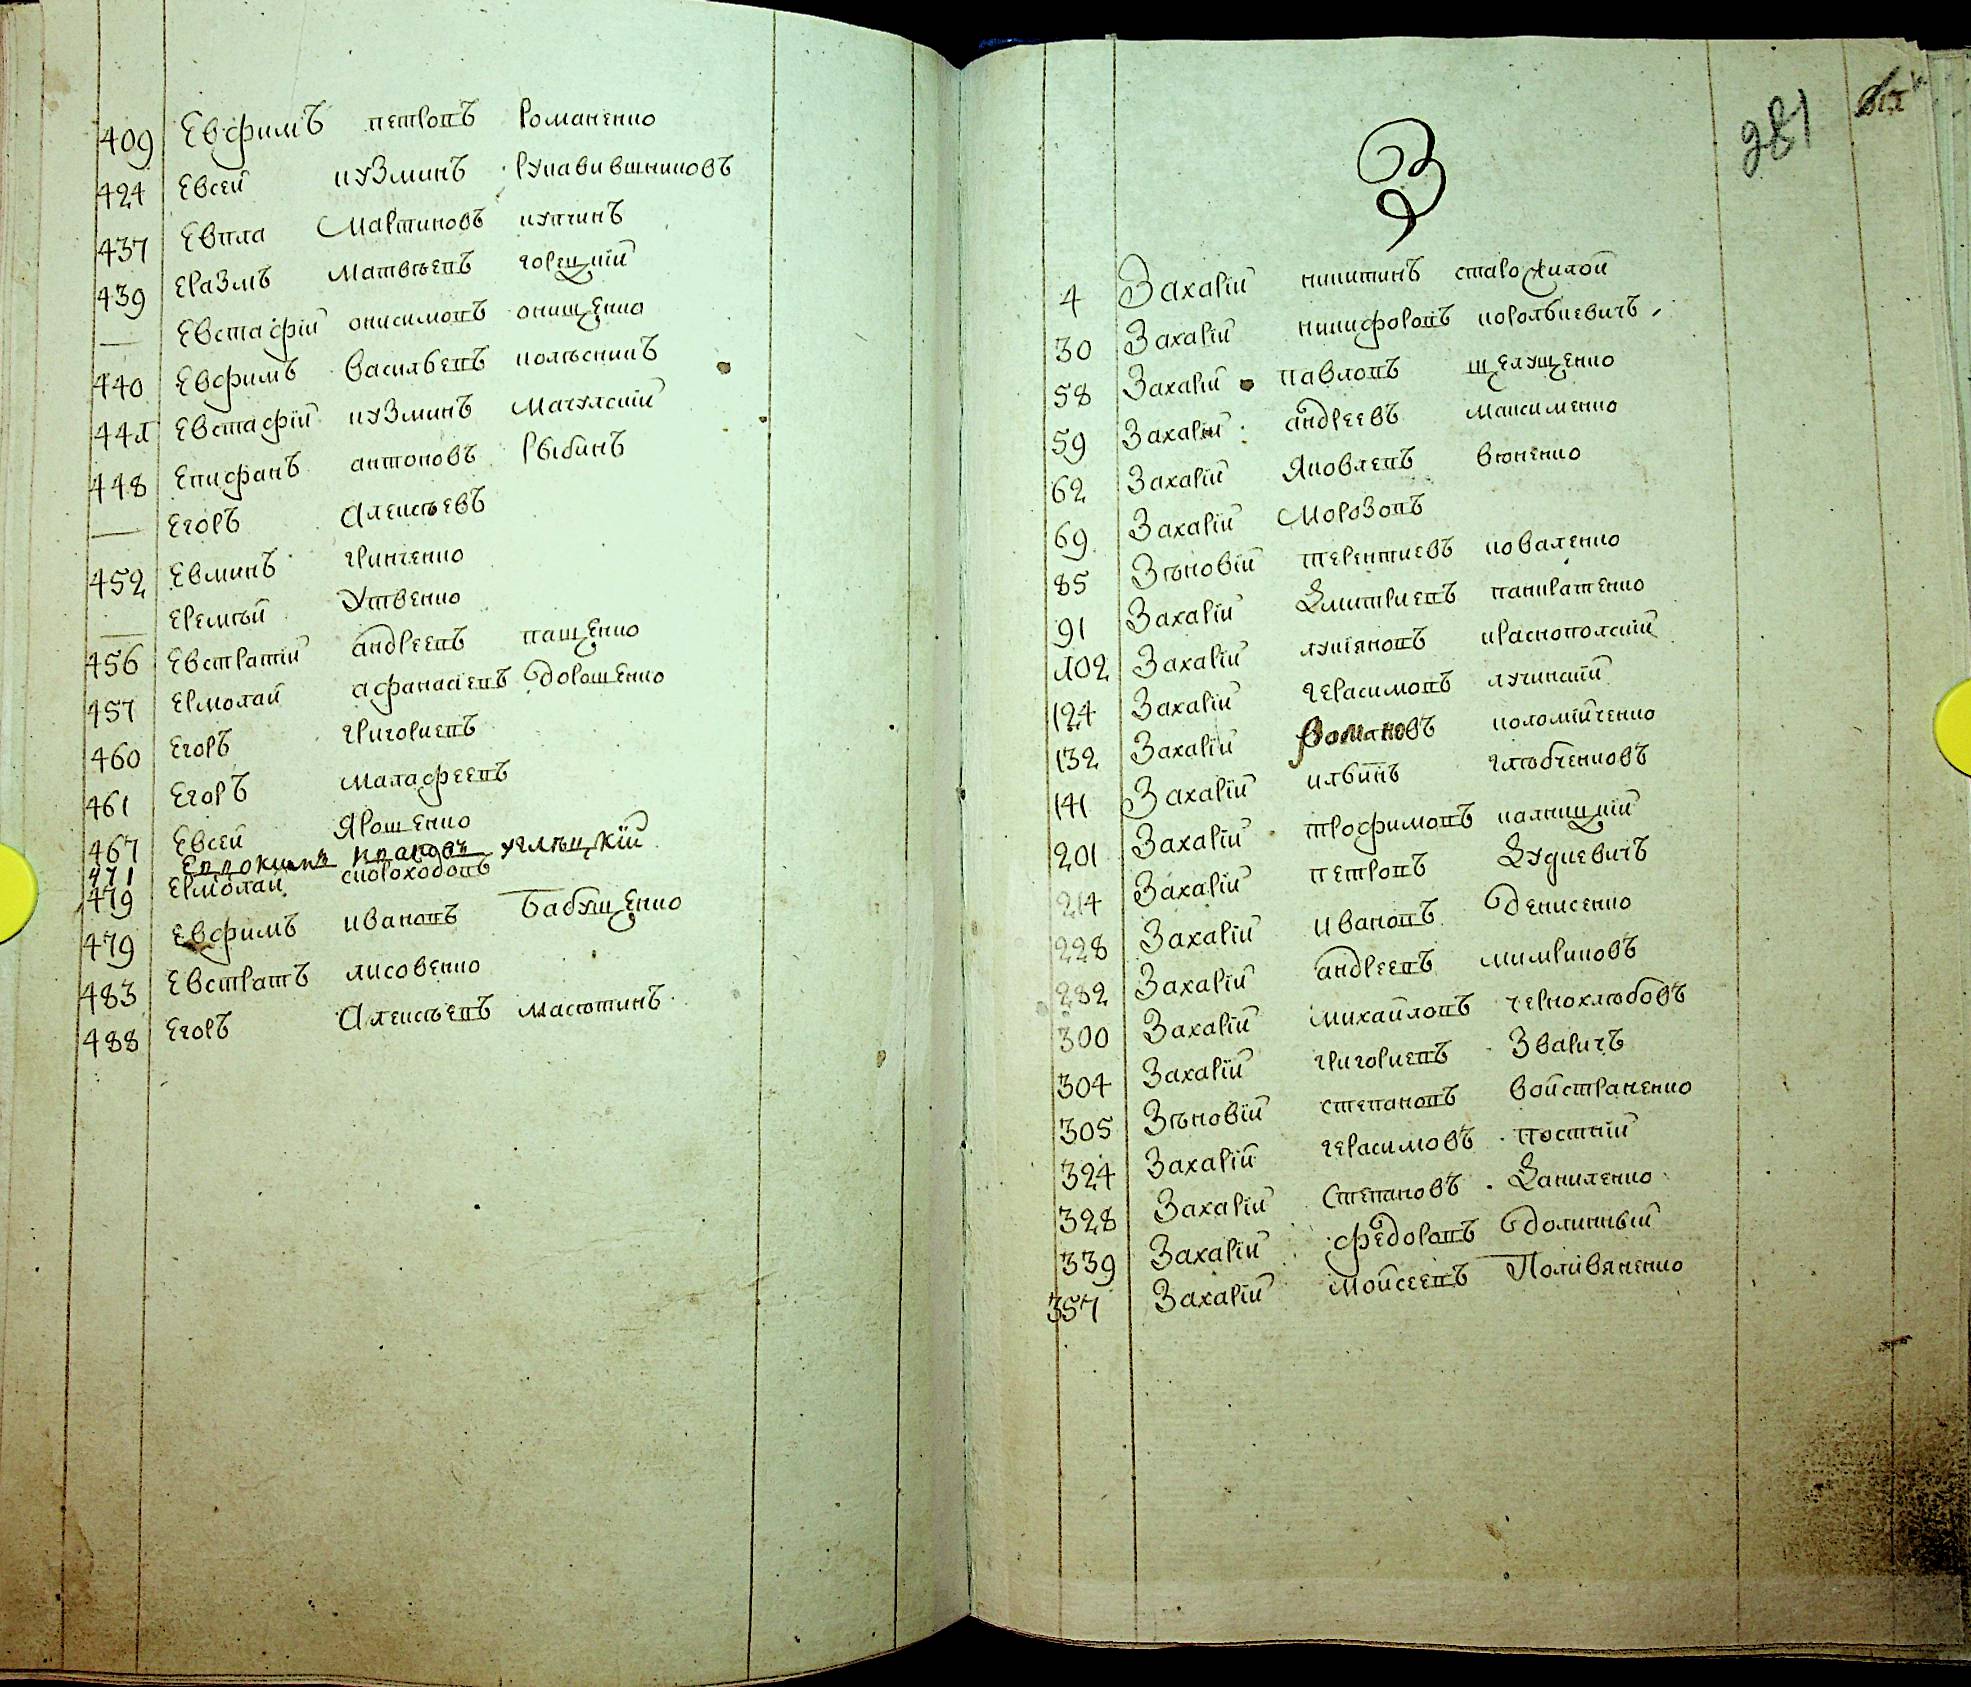 409 Евфимъ петровъ Романенко
424 Евсей кузминъ Рукавишниковъ
437 Евпла Мартиновъ купчинъ
439 Еразмъ матвѣевъ горецкій
— Евстафій онисимовъ онищенко
440 Евфимъ васильевъ полѣскинъ
441 Евстафій кузминъ Мачулскій
448 Епифанъ антоновъ Рыбинъ
— Егоръ Алексѣевъ
452 Евминъ гринченко
— Еремѣй Утвенко
456 Евстратій андреевъ пащенко
457 Ермолай афанасіевъ дорошенко
460 Егоръ григориевъ
461 Егоръ малафеевъ
467 Евсей Ярошенко
471 Евдокимъ ивановъ углѣцкій
479 Ермолай скороходовъ
479 Евфимъ ивановъ Бабущенко
483 Евстратъ лисовенко
488 Егоръ Алексѣевъ масютинъ
281
З
4 Захарій никитинъ старожилой
30 Захарій никифоровъ королькевичъ
58 Захарій павловъ щелущенко
59 Захарій андреевъ максименко
62 Захарій Яковлевъ вюненко
69 Захарій Морозовъ
85 Зѣновій терентиевъ коваленко
91 Захарій Дмитриевъ панкратенко
102 Захарій лукіяновъ краснополскій
124 Захарій герасимовъ лучинскій
132 Захарій Романовъ коломійченко
141 Захарій ильинъ глюбченковъ
201 Захарій трофимовъ калницкій
214 Захарій петровъ Дудкевичъ
228 Захарій ивановъ денисенко
282 Захарій андреевъ мимриковъ
300 Захарій михайловъ чернохлюбовъ
304 Захарій григориевъ Зваричъ
305 Зѣновій степановъ войстраненко
324 Захарій герасимовъ постній
328 Захарій Степановъ Даниленко
339 Захарій федоровъ долинный
357 Захарій мойсеевъ Поливяненко